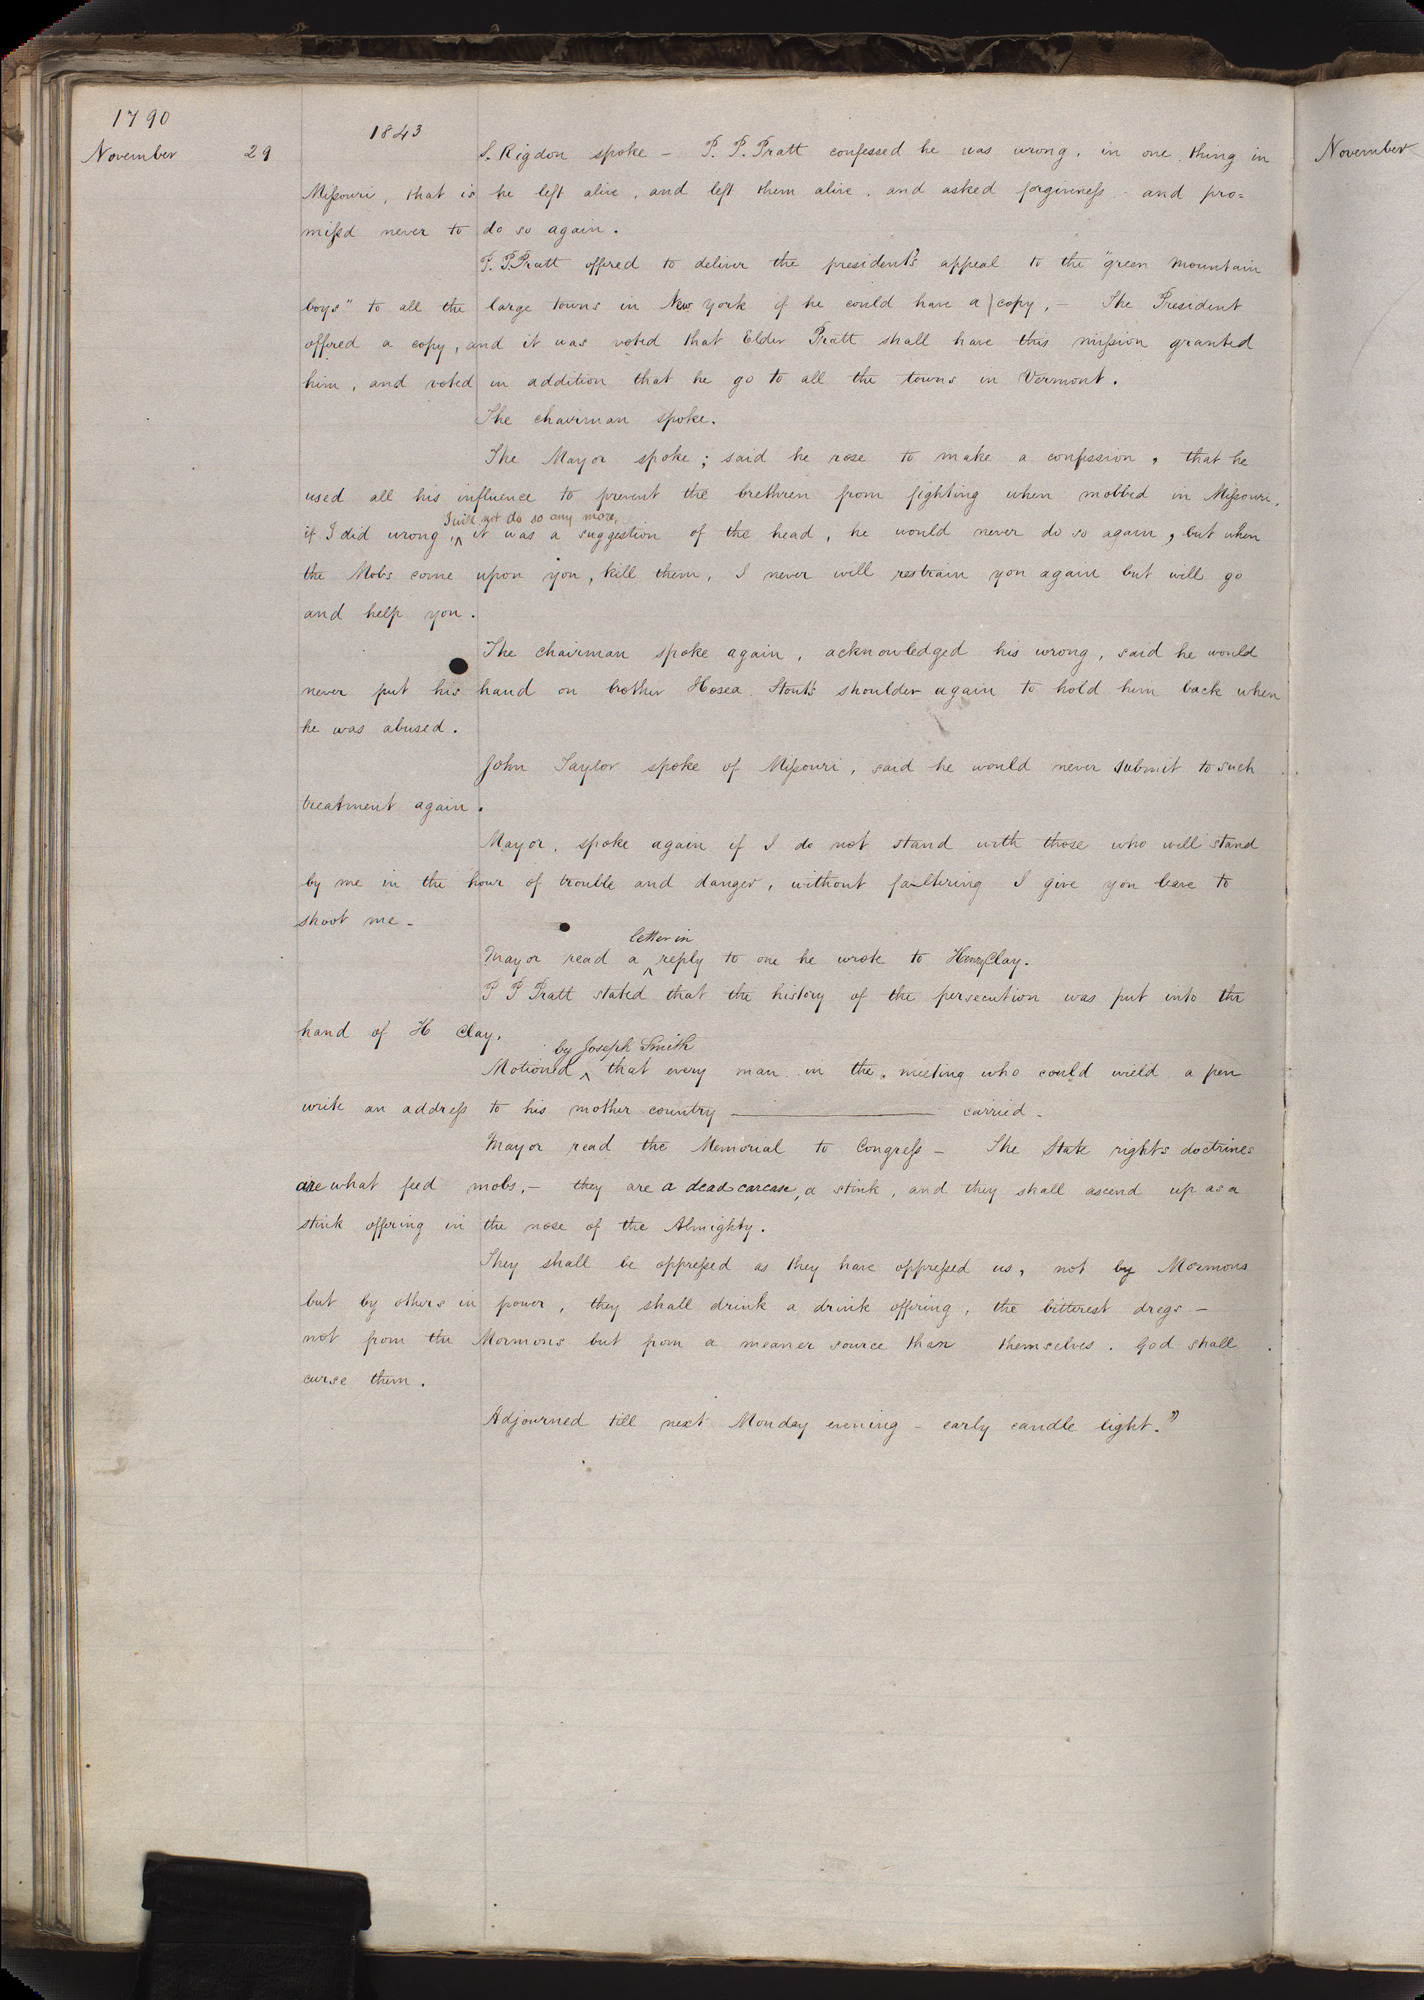 1790
1843
November 29 S. Rigdon spoke – P. P. Pratt confessed he was wrong, in one thing in
Missouri, that is he left alive, and left them alive, and asked forgiveness and pro=
missd never to do so again.
P. P. Pratt offered to deliver the president's appeal to the "green mountain
boys" to all the large towns in New York if he could have a copy, – The President
offered a copy, and it was voted that Elder Pratt shall have this mission granted
him, and voted in addition that he go to all the towns in Vermont.
The chairman spoke.
The Mayor spoke; said he rose to make a confession, that he
used all his influence to prevent the brethren from fighting when mobbed in Missouri,
I will not do so any more,
if I did wrong, ^ it was a suggestion of the head, he would never do so again, but when
the Mobs come upon you, kill them, I never will restrain you again but will go
and help you.
The chairman spoke again, acknowledged his wrong, said he would
never put his hand on brother Hosea Stout's shoulder again to hold him back when
he was abused.
John Taylor spoke of Missouri, said he would never submit to such
treatment again.
Mayor, spoke again if I do not stand with those who will stand
by me in the hour of trouble and danger, without faltering I give you leave to
shoot me –
letter in
Mayor read a ^ reply to one he wrote to Henry Clay.
P P Pratt stated that the history of the persecution was put into the
hand of H Clay.
by Joseph Smith
Motioned ^ that every man in the meeting who could wield a pen
write an address to his mother country ——— carried –
Mayor read the Memorial to Congress – The State rights doctrines
are what feed mobs, – they are a dead carcase, a stink, and they shall ascend up as a
stink offering in the nose of the Almighty.
They shall be oppressed as they have oppressed us, not by Mormons
but by others in power, they shall drink a drink offering, the bitterest dregs –
not from the Mormons but from a meaner source than themselves. God shall
curse them.
Adjourned till next Monday evening – early candle light."
November